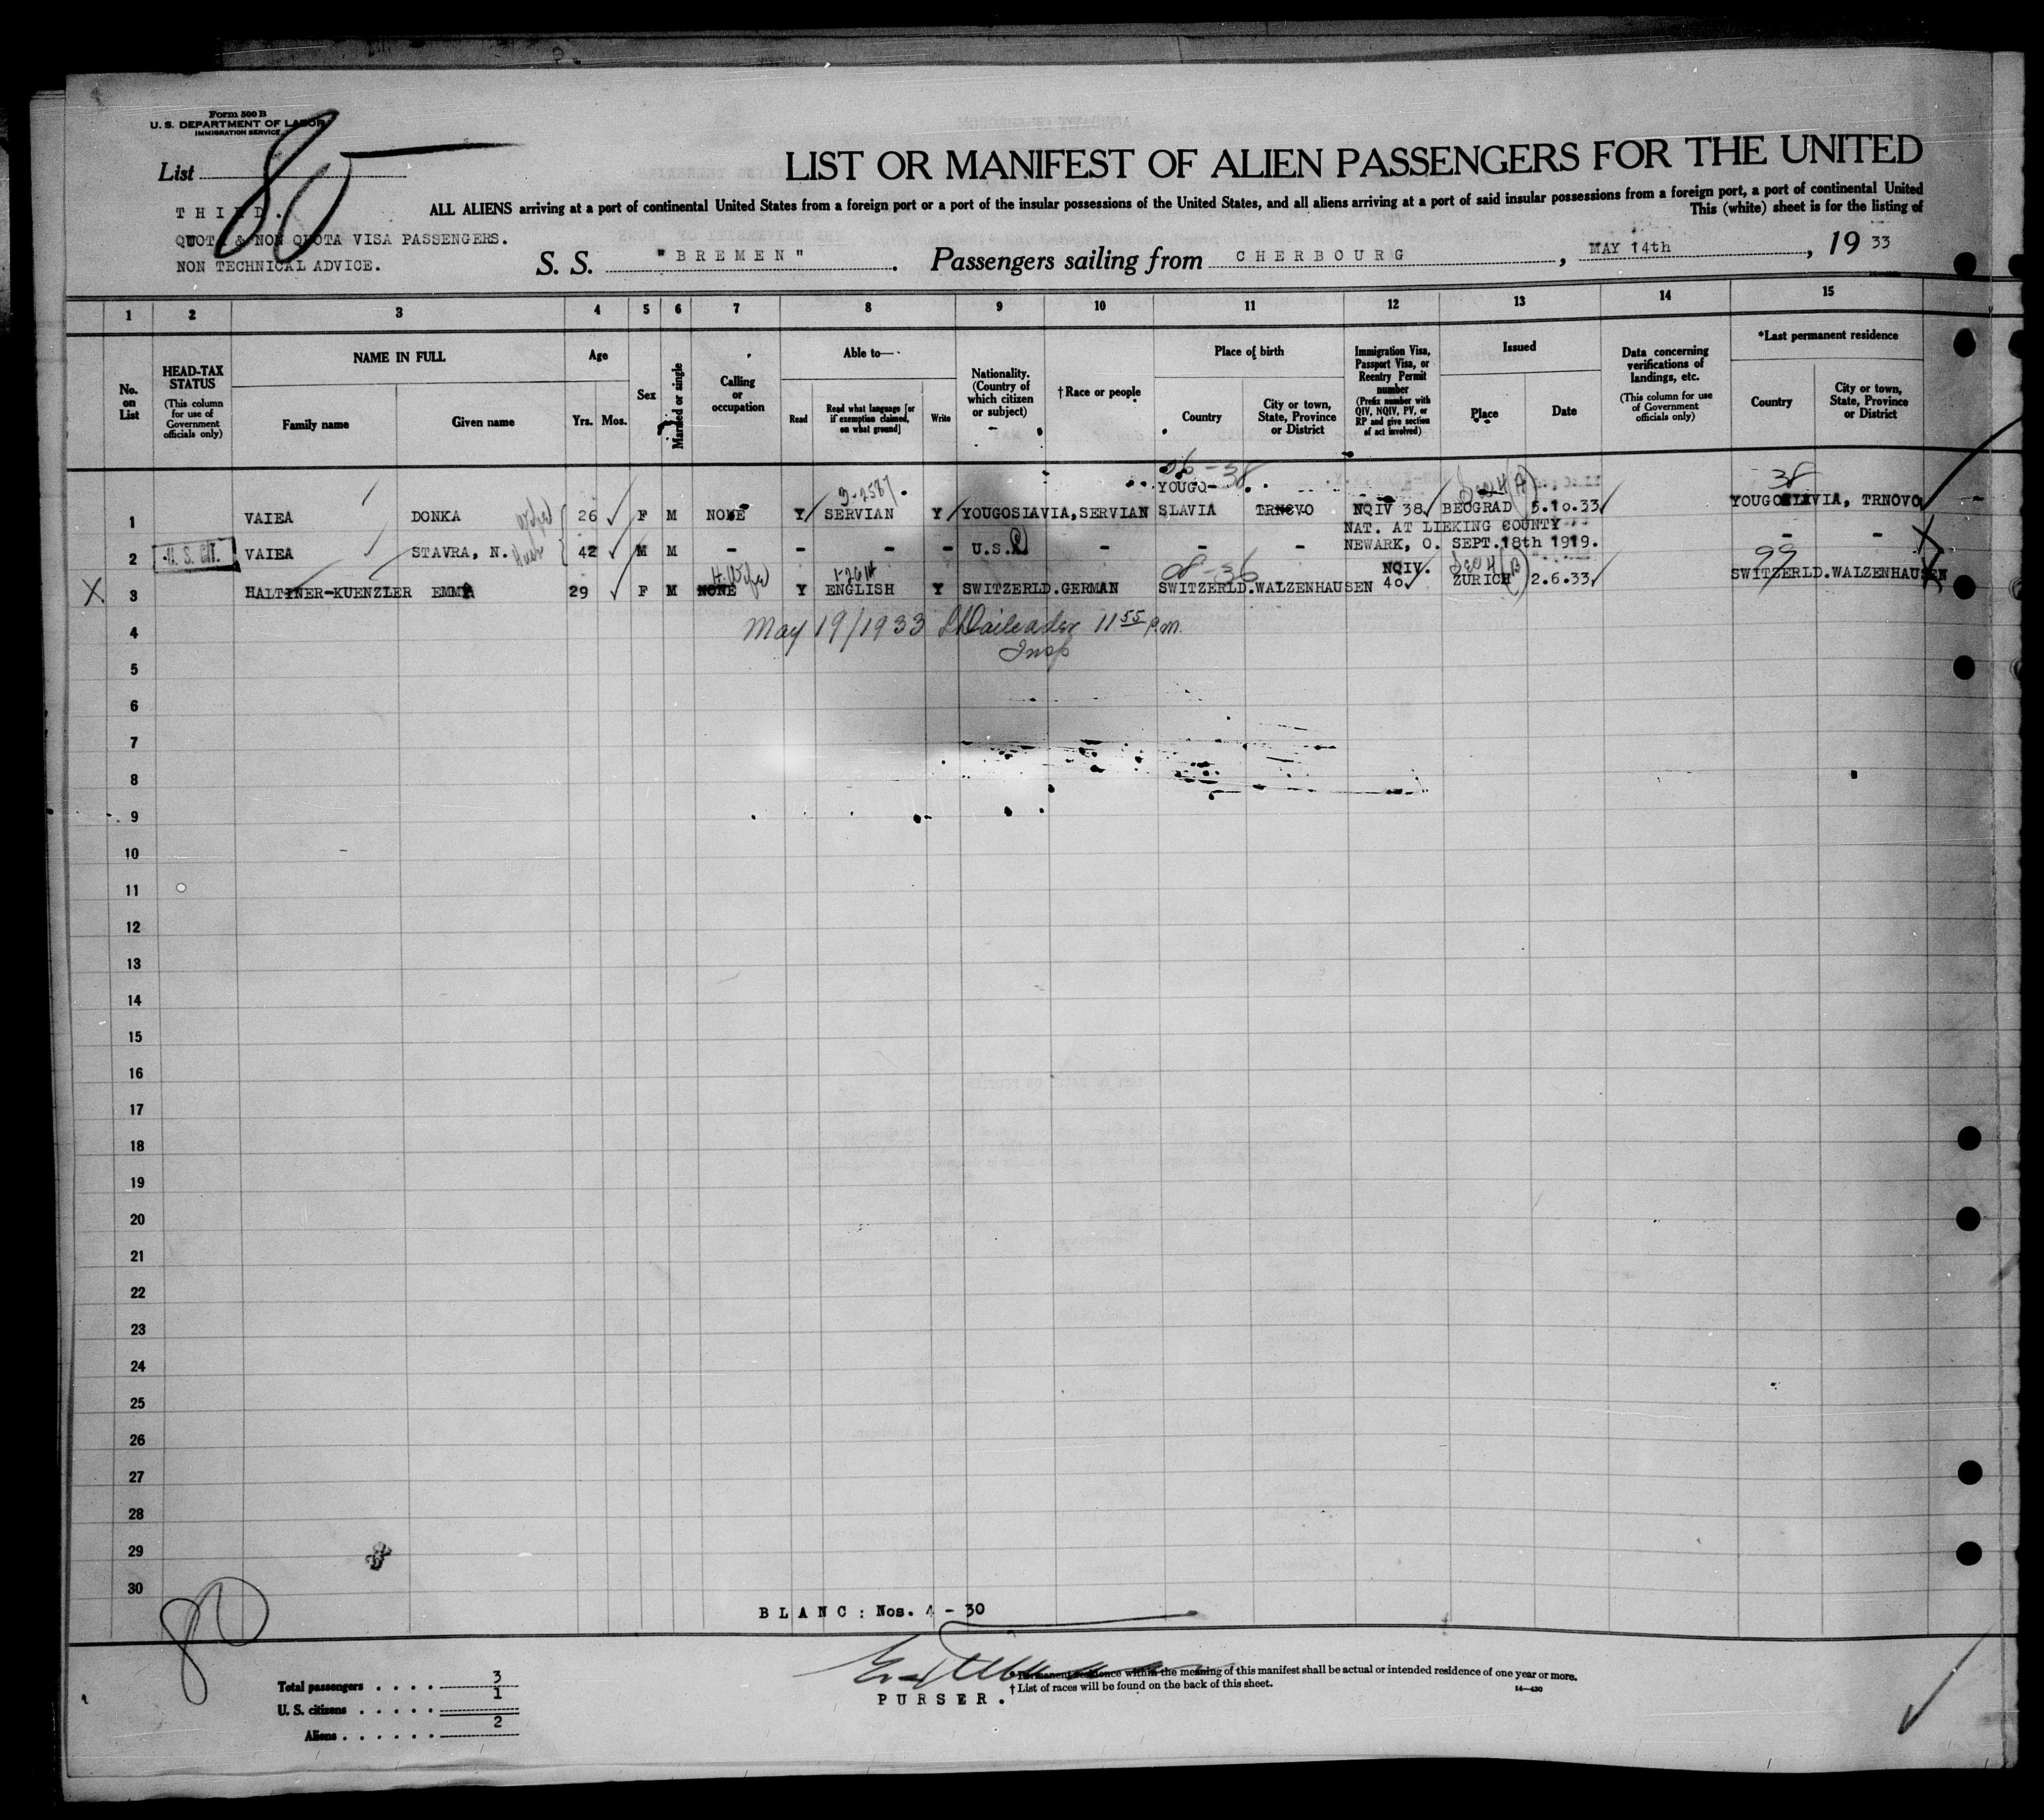 Form 500 B
U. S. DEPARTMENT OF LABOR
IMMIGRATION SERVICE
List 80
THIRD.
QUOT & NON QUOTA VISA PASSENGERS.
NON TECHNICAL ADVICE.
LIST OR MANIFEST OF ALIEN PASSENGERS FOR THE UNITED
ALL ALIENS arriving at a port of continental United States from a foreign port or a port of the insular possessions of the United States, and all aliens arriving at a port of said insular possessions from a foreign port, a port of continental United
This (white) sheet is for the listing of
S. S. "BREMEN". Passengers sailing from CHERBOURG, MAY 14th, 19 33
1 2 3 4 5 6 7 8 9 10 11 12 13 14 15
No. on List
HEAD-TAX STATUS (This column for use of Government officials only)
NAME IN FULL
Family name
Given name
Age
Yrs. Mos.
Sex
Married or single
Calling or occupation
Able to—
Read
Read what language [or if exemption claimed, on what ground]
Write
Nationality. (Country of which citizen or subject)
†Race or people
Place of birth
Country
City or town, State, Province or District
Immigration Visa, Passport Visa, or Reentry Permit number (Prefix number with QIV, NQIV, PV, or RP and give section of act involved)
Issued
Place
Date
Data concerning verifications of landings, etc. (This column for use of Government officials only)
*Last permanent residence
Country
City or town, State, Province or District
3-2587 06-38 Sec 4(A) 38
YOUGO-
1 VAIEA DONKA Wife 26 F M NONE Y SERVIAN Y YOUGOSIAVIA, SERVIAN SLAVIA TRNOVO NQIV 38 BEOGRAD 5.10.33 YOUGOSIAVIA, TRNOVO -
NAT. AT LIEKING COUNTY
2 U. S. CIT. VAIEA STAVRA, N. Husb 42 M M - - - - U.S.A - - - NEWARK, O. SEPT.18th 1919. - - X
H.Wife 1-2614 08-36 NQIV. Sec 4(B) 99
X 3 HALTINER-KUENZLER EMMA 29 F M NONE Y ENGLISH Y SWITZERLD. GERMAN SWITZERLD. WALZENHAUSEN 40 ZURICH 2.6.33 SWITZERLD. WALZENHAUSEN
4 May 19/1933 11 55 P.M.
Insp
5
6
7
8
9
10
11
12
13
14
15
16
17
18
19
20
21
22
23
24
25
26
27
28
29
30
BLANC: Nos. 4 - 30
80
Total passengers . . . . 3
U. S. citizens . . . . . 1
Aliens . . . . . . 2
PURSER.
*Permanent residence within the meaning of this manifest shall be actual or intended residence of one year or more.
†List of races will be found on the back of this sheet.
14—430